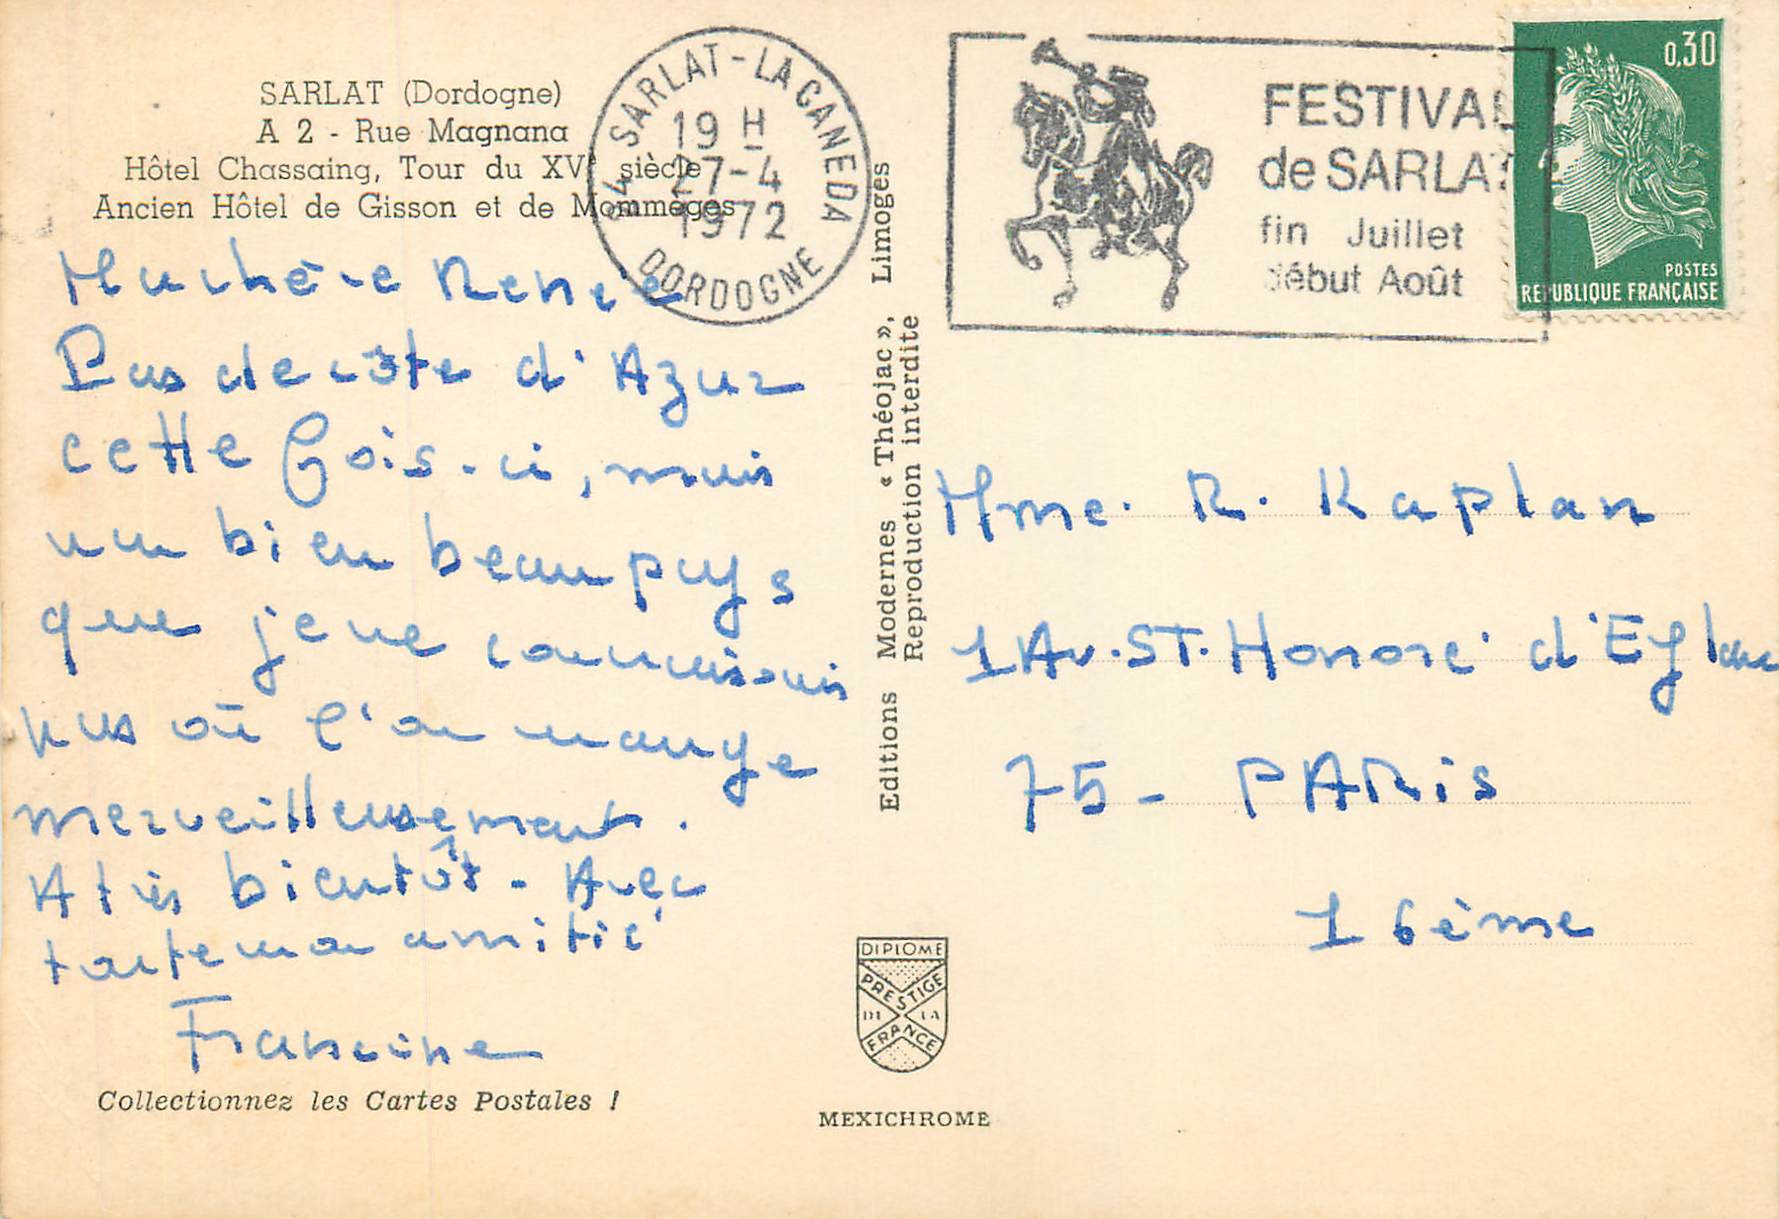 SARLAT (Dordogne)
A 2 - Rue Magnana
Hôtel Chassaing, Tour du XVe siècle
Ancien Hôtel de Gisson et de Mommèges
24 SARLAT-LA CANEDA
19 H
27-4
1972
DORDOGNE
FESTIVAL
de SARLAT
fin Juillet
début Août
0,30
POSTES
REPUBLIQUE FRANÇAISE
Ma chère Renée
Pas de côte d'Azur
cette fois-ci, mais
un bien beau pays
que je ne connaissais
pas où l'on mange
merveilleusement.
A très bientôt - Avec
toute mon amitié
Francine
Collectionnez les Cartes Postales !
Editions Modernes « Théojac », Limoges
Reproduction interdite
DIPLOME
PRESTIGE
DE LA
FRANCE
MEXICHROME
Mme. R. Kaplan
1 Av. ST. Honoré d'Eylau
75 - PARIS
16ème